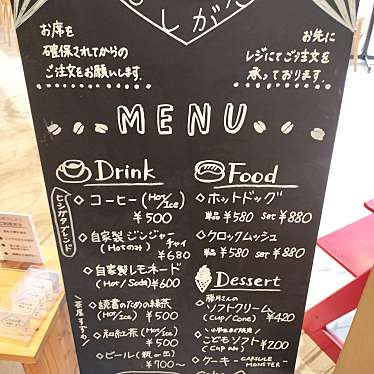 しがた
お席を
確保されてからの
ご注文をお願いします.
お先に
レジにてご注文を
承っております.
MENU
Drink
ヒシガタブレンド
◇コーヒー(Hot/Ice)
¥500
◇自家製ジンジャーチャイ
(Hotのみ) ¥680
◇自家製レモネード
(Hot/Soda) ¥600
茶屋すすめ!
◇読書のための緑茶
(Hot/Ice) ¥500
◇和紅茶(Hot/Ice)
¥500
◇ビール(瓶or缶)
¥700〜
Food
◇ホットドッグ
単品¥580 set¥880
◇クロックムッシュ
単品¥580 set¥880
Dessert
◇藤井さんの
ソフトクリーム
(Cup/Cone) ¥420
\小学生まで限定/
◇こどもソフト¥200
(Cup only)
◇ケーキ -CAPSULE MONSTER-